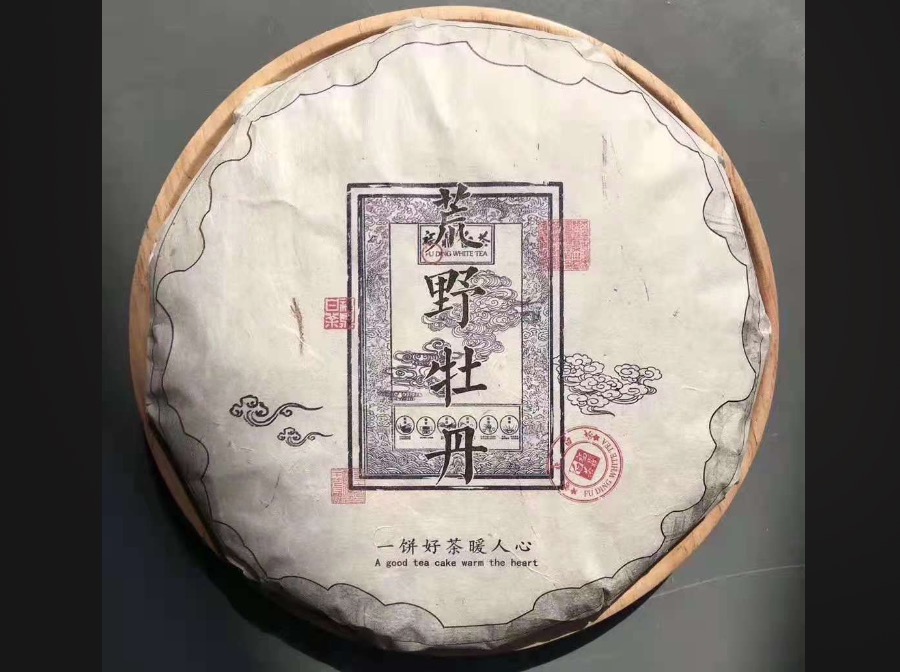 荒野牡丹
FU DING WHITE TEA
FU DING WHITE TEA
一饼好茶暖人心
A good tea cake warm the heart